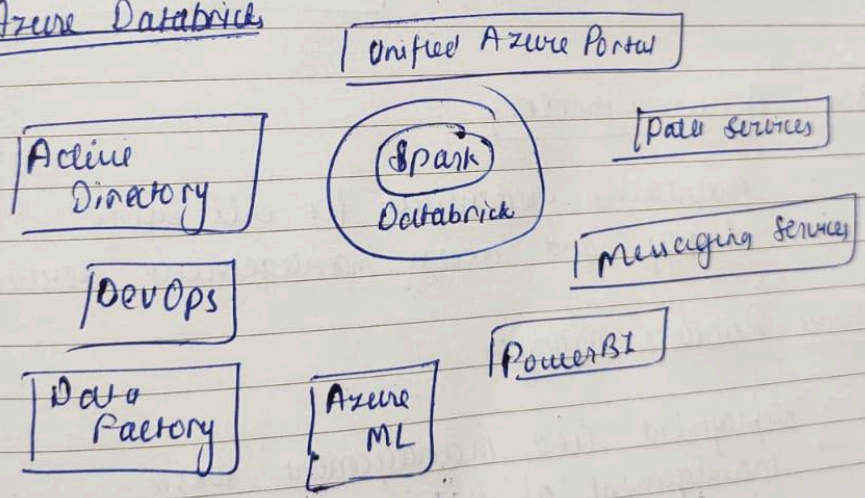 Azure Databricks
Unified Azure Portal
Active
Directory
Spark
Databrick
Data Services
Messaging Services
DevOps
PowerBI
Data
Factory
Azure
ML